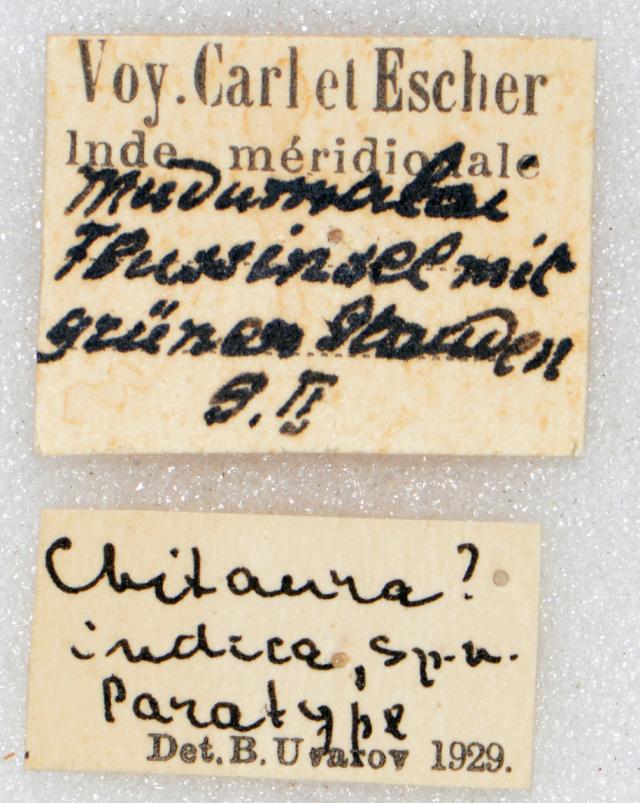 Voy. Carl et Escher
Inde méridionale
Mudumalai
Flussinsel mit
grünen Stauden
8. II
Chitaura?
indica, sp. n.
Paratype
Det. B. Uvarov 1929.